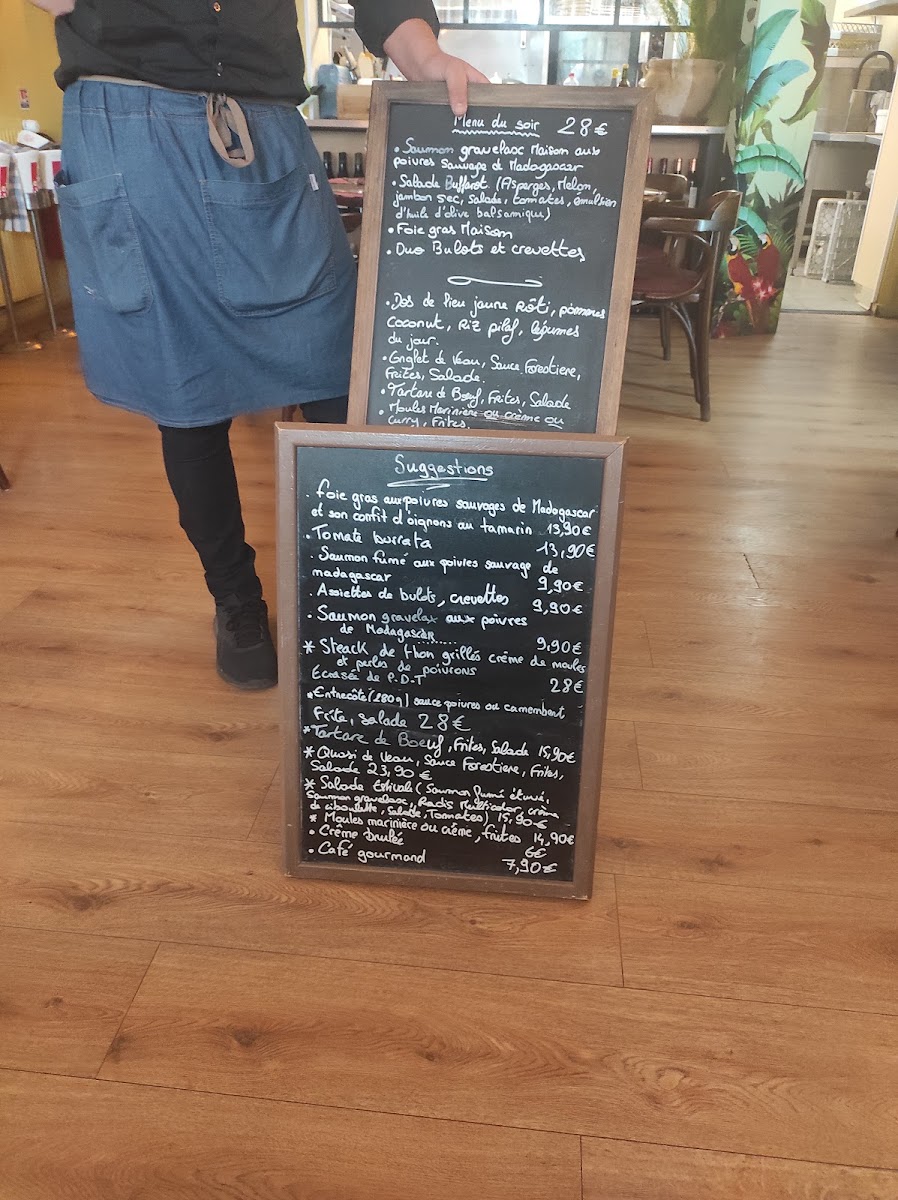 Menu du soir 28€
• Saumon gravelax Maison aux
poivres Sauvage de Madagascar
• Salade Buffarot (Asperges, Melon,
jambon sec, salade, tomates, émulsion
d'huile d'olive balsamique)
• Foie gras Maison
• Duo Bulots et crevettes
• Dos de lieu jaune Rôti, pommes
coconut, Riz pilaf, légumes
du jour.
• Onglet de Veau, Sauce Forestiere,
Frites, Salade.
• Tartare de Bœuf, Frites, Salade
• Moules Marinière ou crème ou
curry, Frites.
Suggestions
• foie gras aux poivres sauvages de Madagascar
et son confit d'oignons au tamarin 13,90€
• Tomate burrata 13,90€
• Saumon fumé aux poivres sauvage de
madagascar 9,90€
• Assiettes de bulots, crevettes 9,90€
• Saumon gravelax aux poivres
de Madagascar 9,90€
* Steack de thon grillés crème de moules
et perles de poivrons
Ecrasé de P.D.T 28€
• Entrecôte (280g) sauce poivres ou camembert
Frite, salade 28€
* Tartare de Boeuf, Frites, Salade 15,90€
* Quasi de Veau, Sauce Forestiere, Frites,
Salade 23,90€
* Salade Estivale (Saumon fumé étuvé,
Saumon gravelax, Radis Multicolor, crème
de ciboulette, Salade, Tomates) 15,90€
* Moules marinière ou crème, frites 14,90€
• Crème brulée 6€
• Café gourmand 7,90€